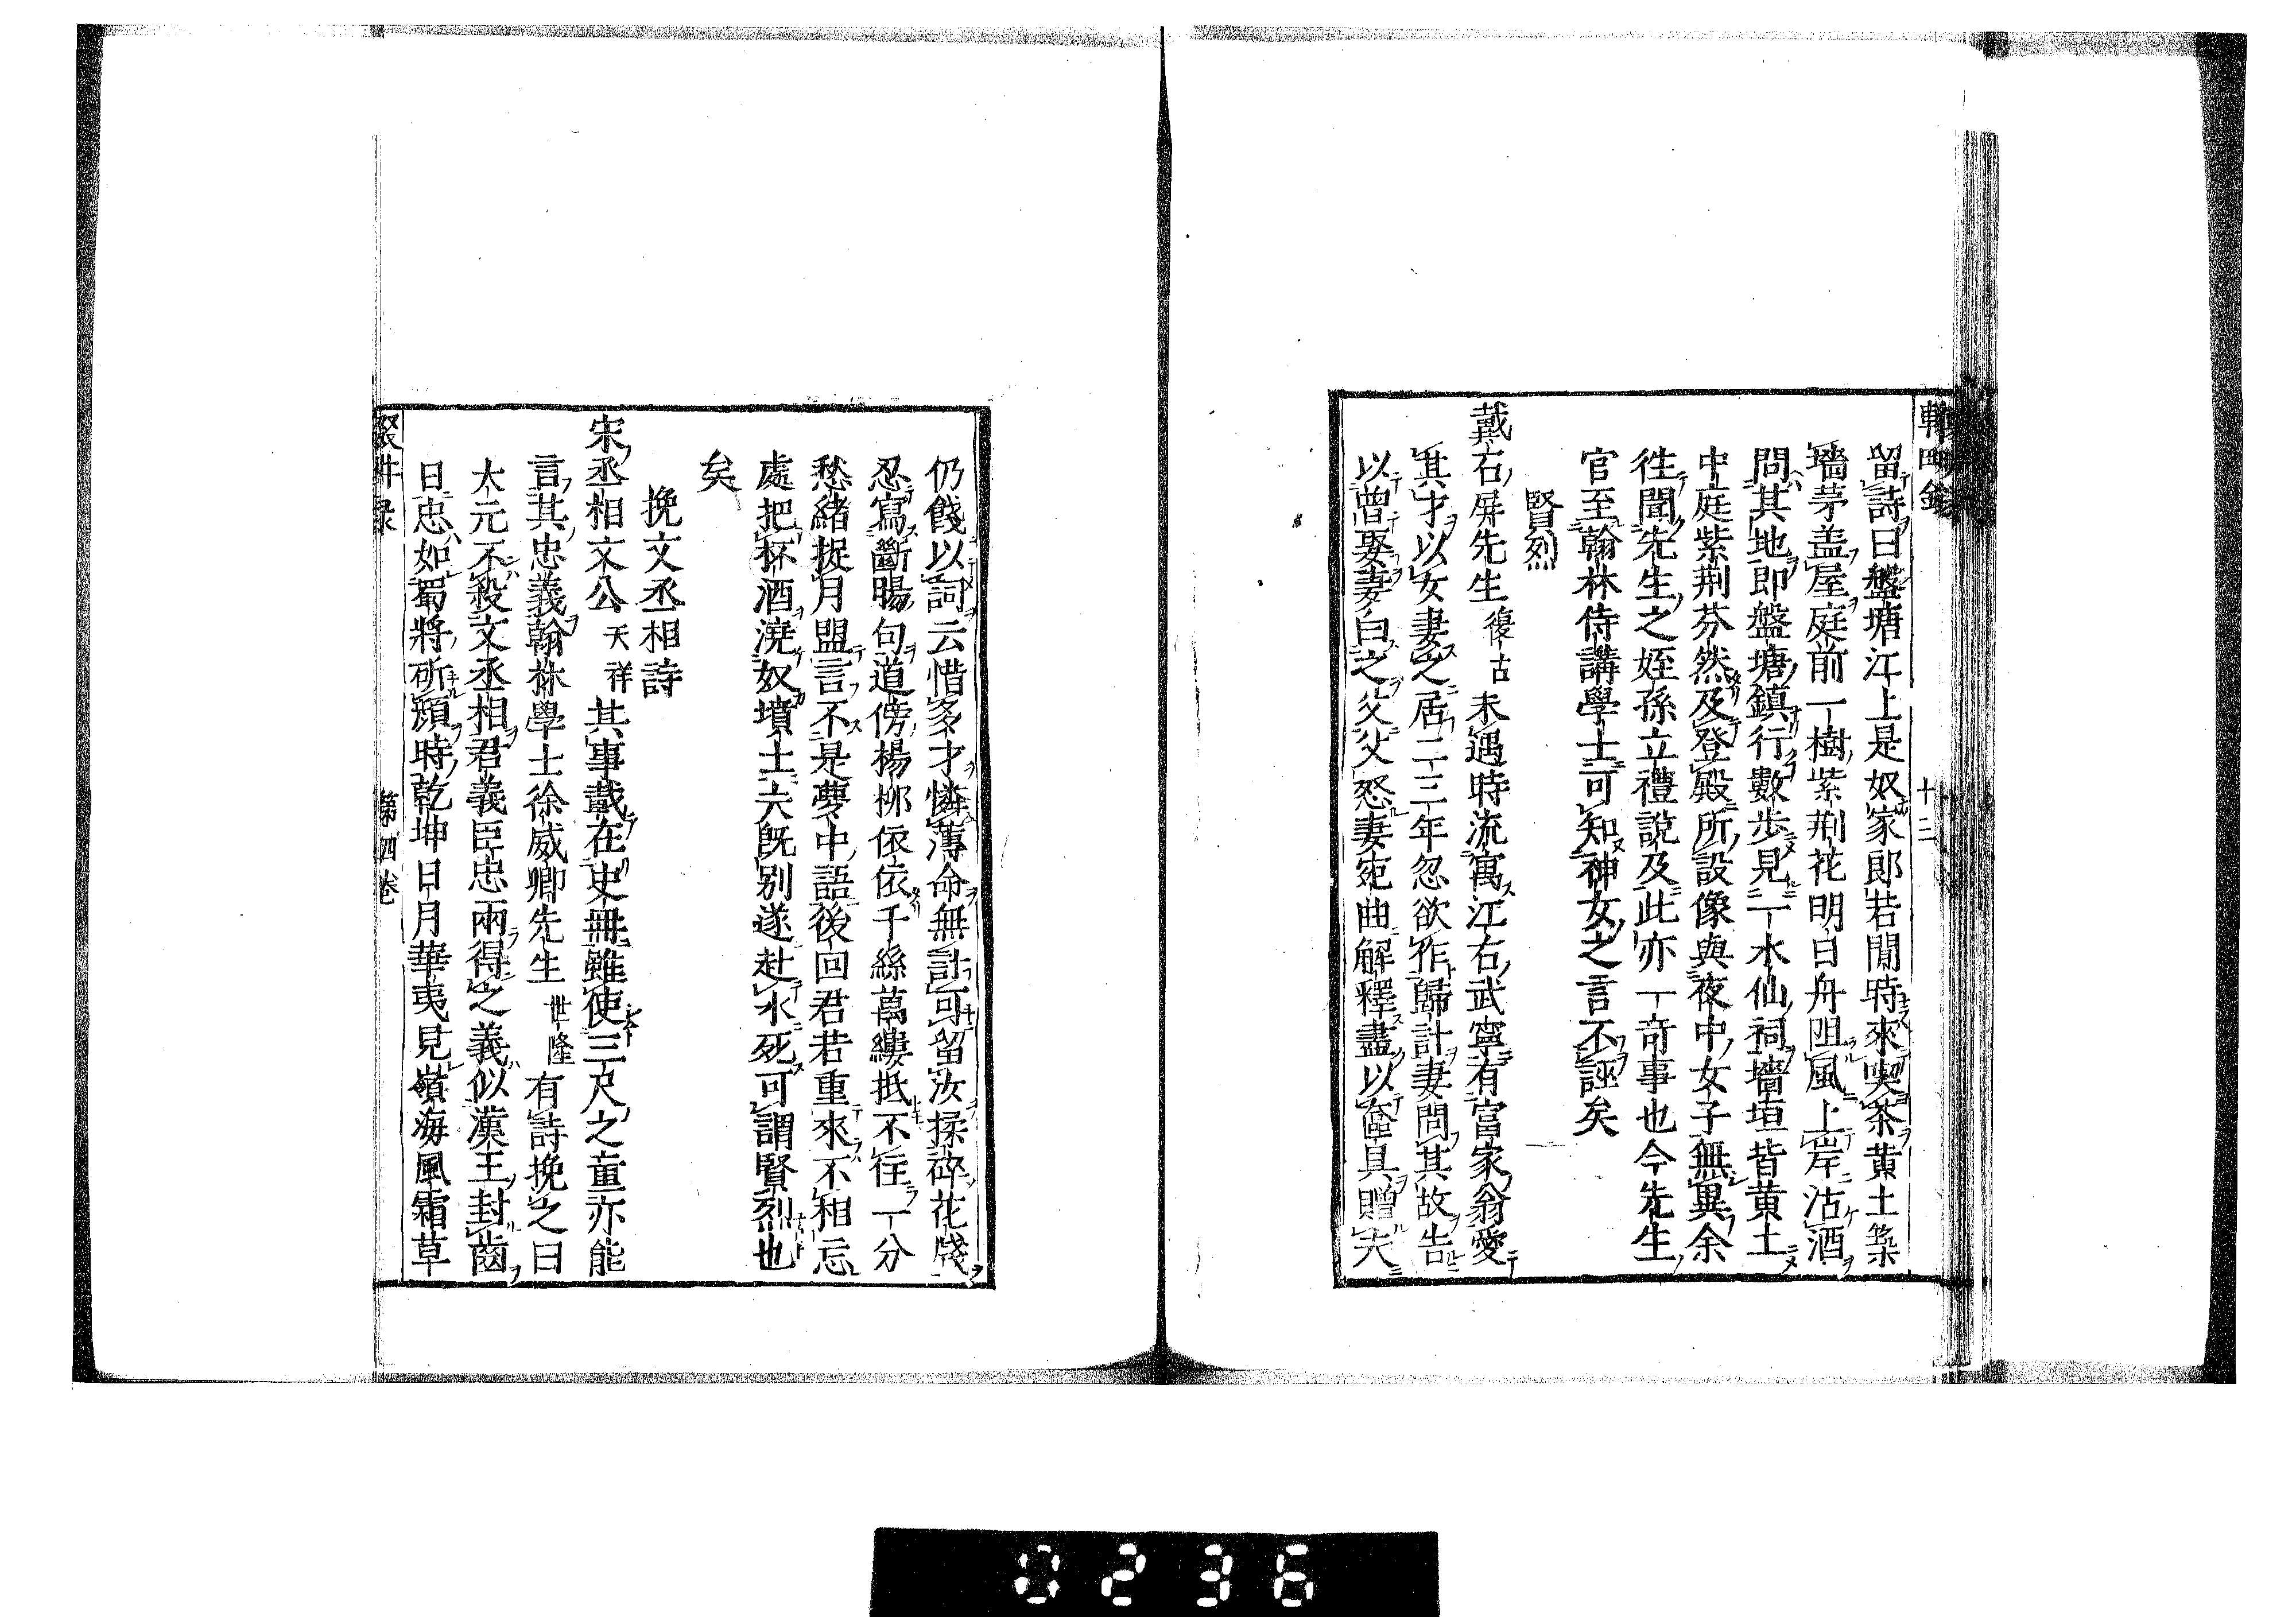 輟畊錄
十三
留詩曰盤塘江上是奴家郎若閒時來喫茶黄土築
墻茅盖屋庭前一樹紫荆花明日舟阻風上岸沽酒
問其地即盤塘鎮行數歩見一水仙祠墻垣皆黄土
中庭紫荆芬然及登殿所設像與夜中女子無異余
徃聞先生之姪孫立禮說及此亦一奇事也今先生
官至翰林侍講學士可知神女之言不誣矣
賢烈
戴石屏先生復古未遇時流寓江右武寧有富家翁愛
其才以女妻之居二三年忽欲作歸計妻問其故告
以曾娶妻白之父父怒妻宛曲解釋盡以奩具贈夫
仍餞以詞云惜多才憐薄命無計可留汝揉碎花牋
忍寫斷腸句道傍楊柳依依千絲萬縷抵不住一分
愁緒捉月盟言不是夢中語後回君若重來不相忘
處把杯酒澆奴墳土夫既别遂赴水死可謂賢烈也
矣
挽文丞相詩
宋丞相文公天祥其事載在史冊雖使三尺之童亦能
言其忠義翰林學士徐威卿先生世隆有詩挽之曰
大元不殺文丞相君義臣忠兩得之義似漢王封齒
日忠如蜀將斫顏時乾坤日月華夷見嶺海風霜草
輟畊录
第四卷
0236